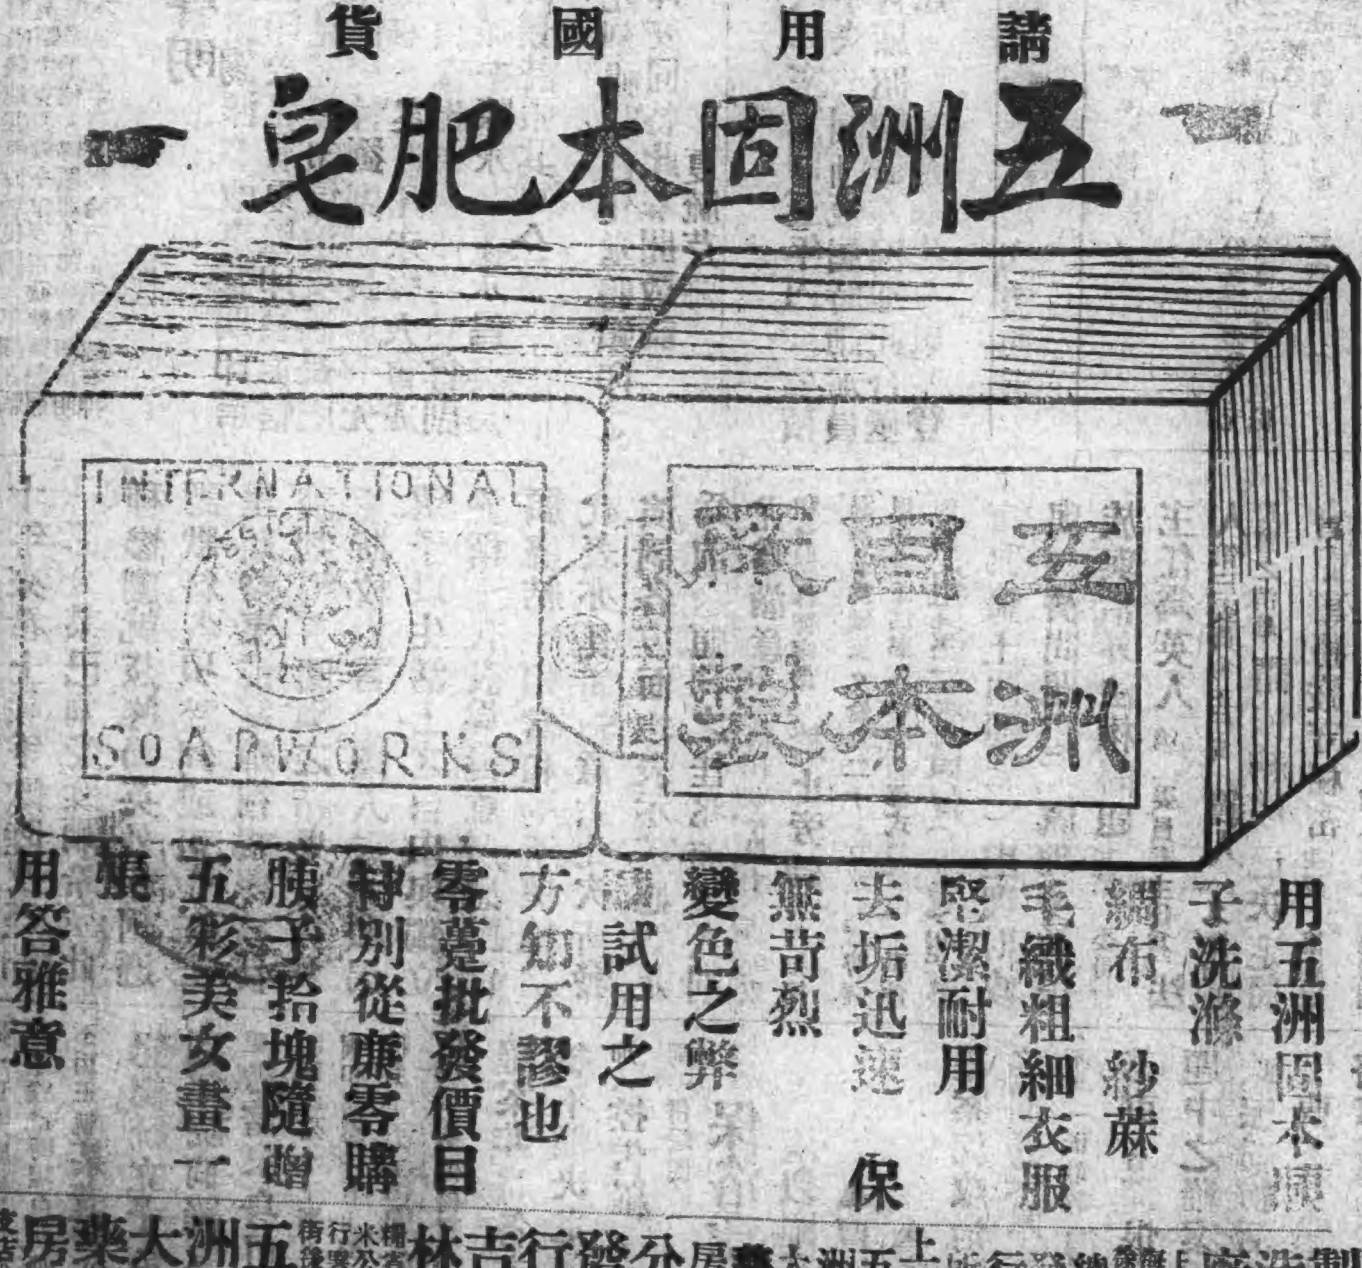 請用國貨
五洲固本肥皂
INTERNATIONAL
SOAP WORKS
五洲
固本
廠製
用五洲固本胰
子洗滌
綢布 紗蔴
毛織粗細衣服
堅潔耐用
去垢迅速 保
無苛烈
變色之弊
試用之
方知不謬也
零躉批發價目
特別從廉零購
胰子拾塊隨贈
五彩美女畫一
張
用答雅意
上
五洲大藥房
分發行吉林
五洲大藥房